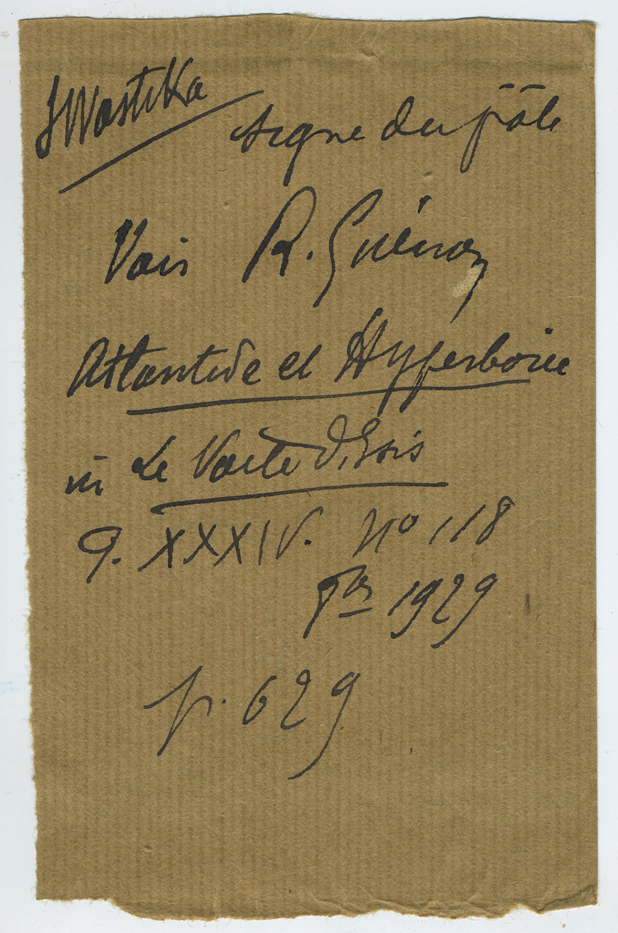 Swastika signe du pôle
Voir R. Guénon
Atlantide et Hyperborée
in Le Voile d'Isis
T. XXXIV. No 118
8bre 1929
p. 629